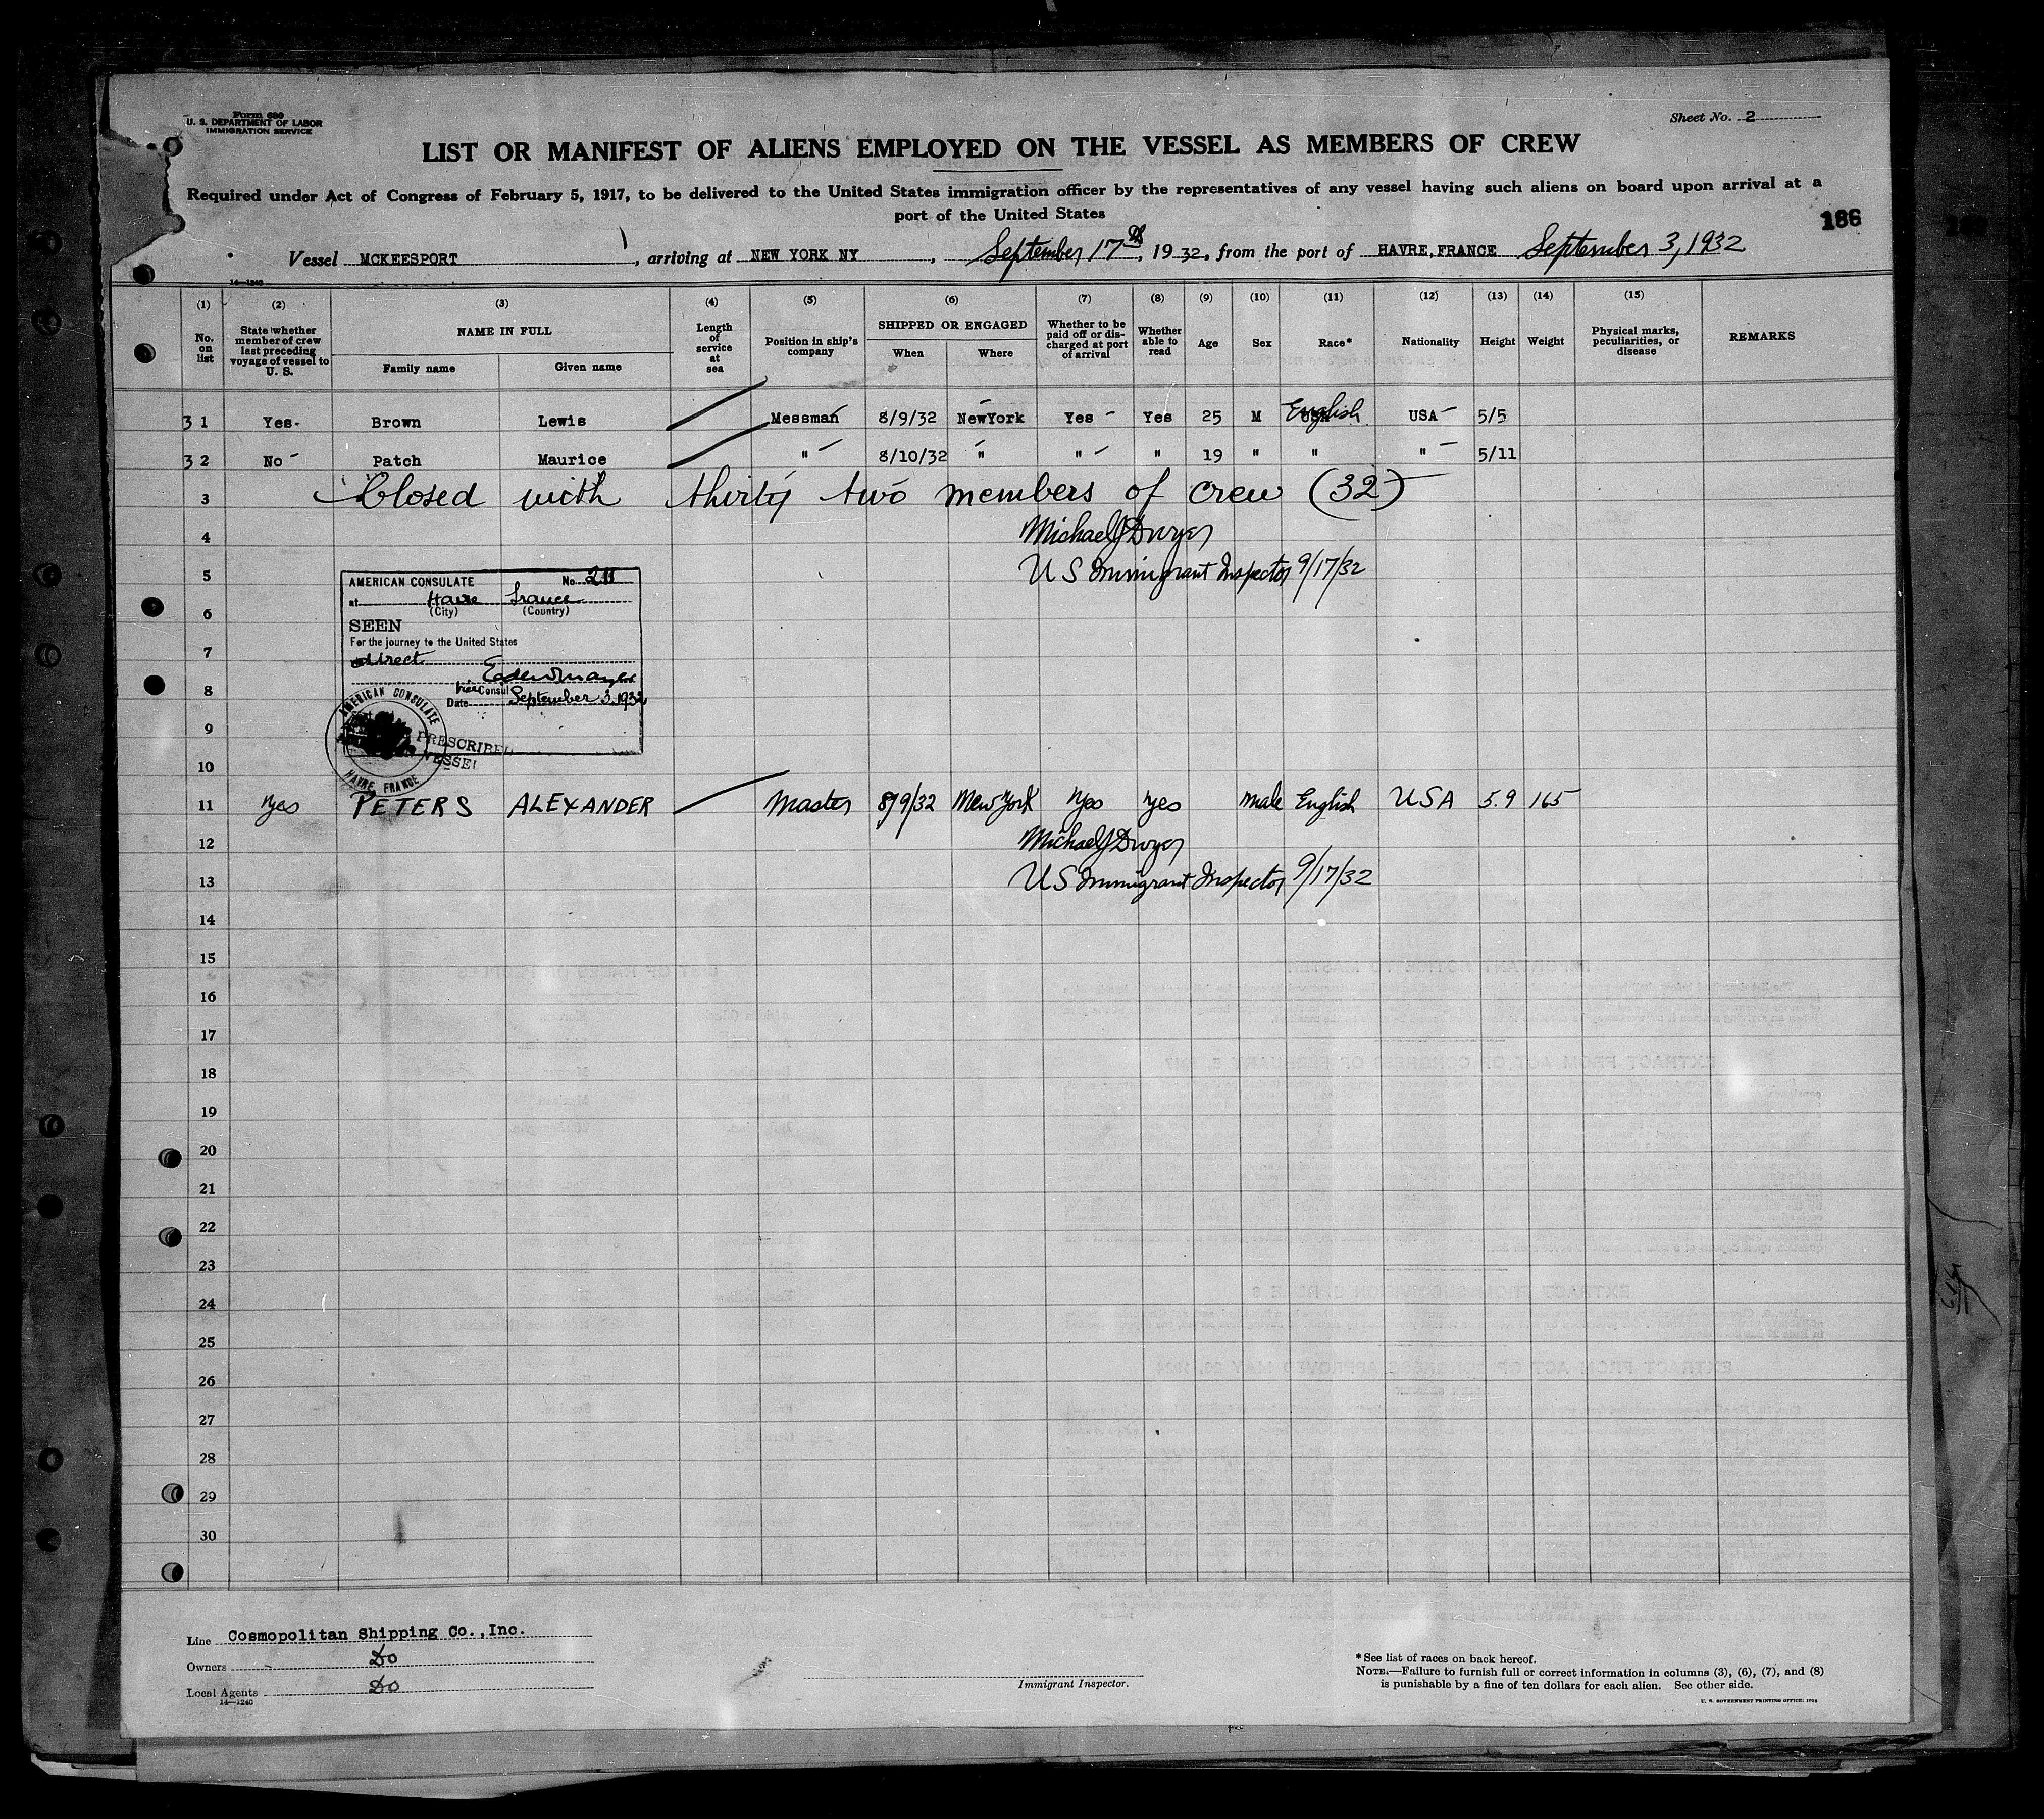 Form 680
U. S. DEPARTMENT OF LABOR
IMMIGRATION SERVICE
Sheet No. 2
LIST OR MANIFEST OF ALIENS EMPLOYED ON THE VESSEL AS MEMBERS OF CREW
Required under Act of Congress of February 5, 1917, to be delivered to the United States immigration officer by the representatives of any vessel having such aliens on board upon arrival at a
port of the United States
186
Vessel MCKEESPORT, arriving at NEW YORK NY, September 17th, 1932, from the port of HAVRE, FRANCE September 3, 1932
14-1240
(1) (2) (3) (4) (5) (6) (7) (8) (9) (10) (11) (12) (13) (14) (15)
No. on list
State whether member of crew last preceding voyage of vessel to U. S.
NAME IN FULL
Family name
Given name
Length of service at sea
Position in ship's company
SHIPPED OR ENGAGED
When
Where
Whether to be paid off or discharged at port of arrival
Whether able to read
Age
Sex
Race*
Nationality
Height
Weight
Physical marks, peculiarities, or disease
REMARKS
31 Yes- Brown Lewis Messman 8/9/32 NewYork Yes - Yes 25 M English USA - 5/5
32 No - Patch Maurice " 8/10/32 " " - " 19 " " " 5/11
3 Closed with thirty two members of crew (32)
4 Michael J Dwyer
5 U S Immigrant Inspector 9/17/32
AMERICAN CONSULATE No. 211
at Havre France
(City) (Country)
SEEN
For the journey to the United States
direct
Vice Consul
Date September 3, 1932
AMERICAN CONSULATE
HAVRE, FRANCE
PRESCRIBED
VESSEL
6
7
8
9
10
11 Yes PETERS ALEXANDER Master 8/9/32 New York Yes Yes male English USA 5.9 165
12 Michael J Dwyer
13 U S Immigrant Inspector 9/17/32
14
15
16
17
18
19
20
21
22
23
24
25
26
27
28
29
30
Line Cosmopolitan Shipping Co.,Inc.
Owners Do
Local Agents Do
14-1240
Immigrant Inspector.
*See list of races on back hereof.
NOTE.—Failure to furnish full or correct information in columns (3), (6), (7), and (8)
is punishable by a fine of ten dollars for each alien. See other side.
U. S. GOVERNMENT PRINTING OFFICE: